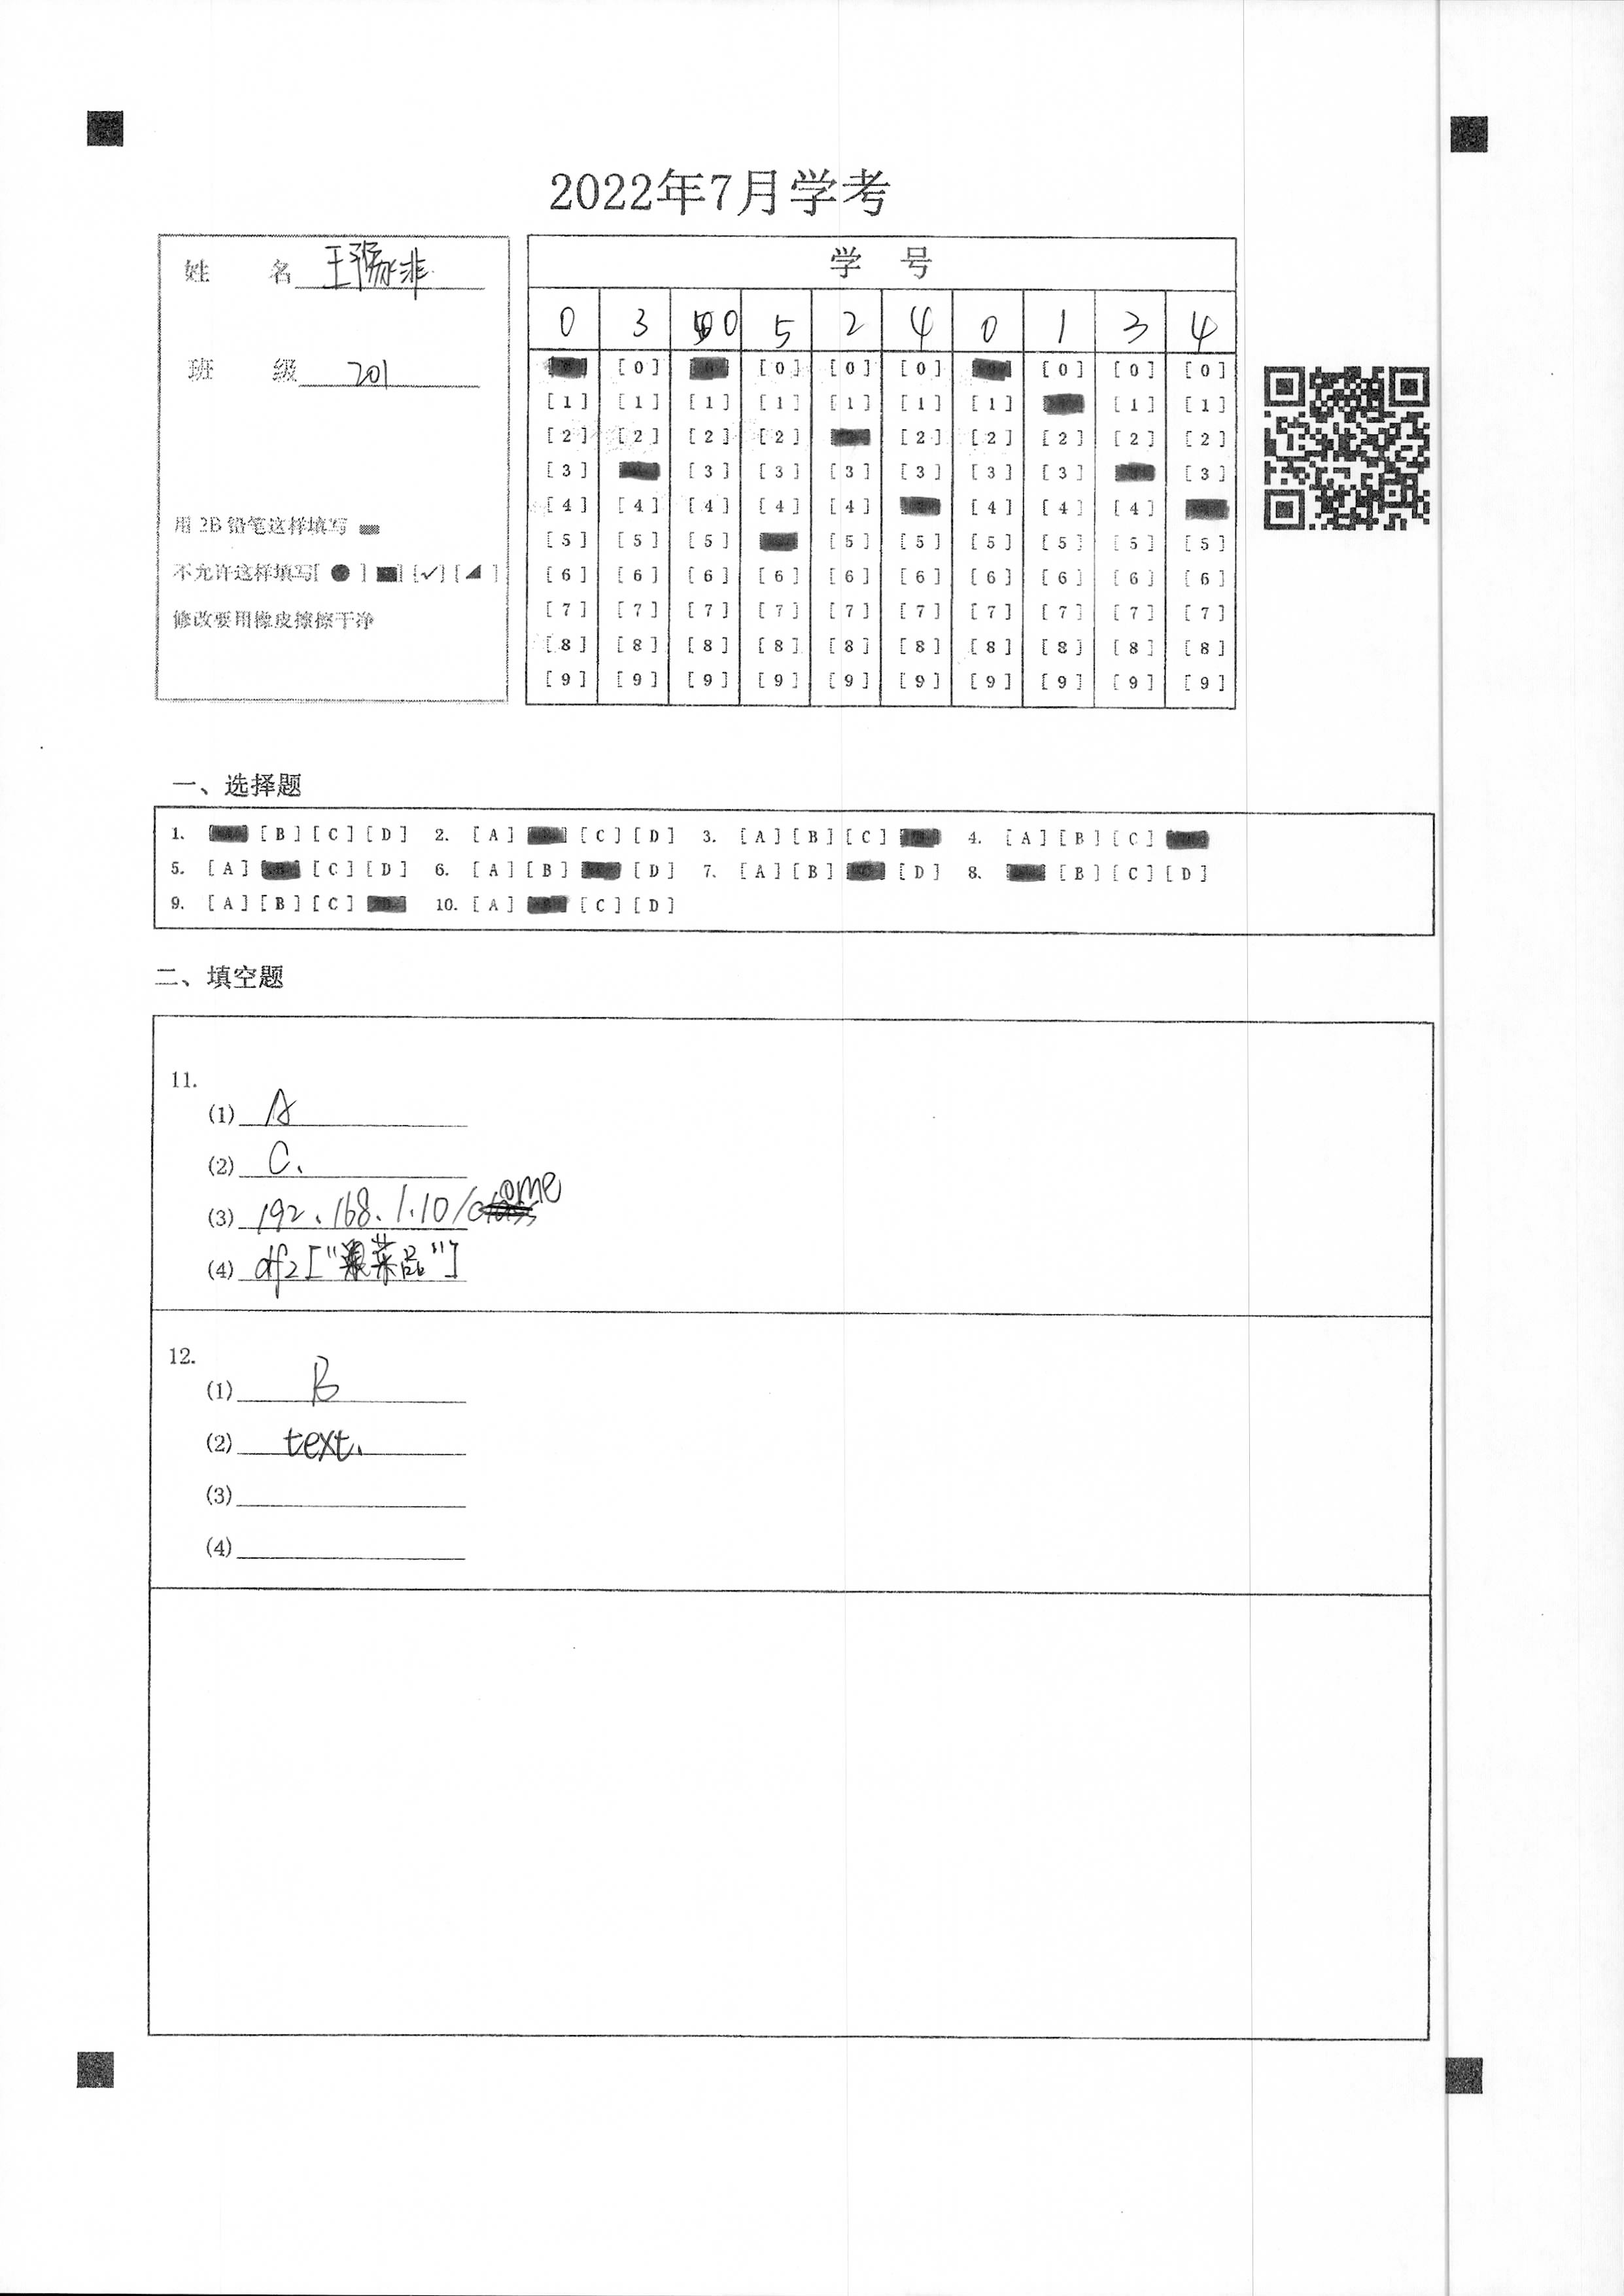 2022年7月学考
姓 名 王
班 级 201
用 2B 铅笔这样填写
不允许这样填写[ ● ] [■] [✓] [◢ ]
修改要用橡皮擦擦干净
学 号
0 3 0 5 2 4 0 1 3 4
[0] [0] [0] [0] [0] [0] [0]
[1] [1] [1] [1] [1] [1] [1] [1] [1]
[2] [2] [2] [2] [2] [2] [2] [2] [2]
[3] [3] [3] [3] [3] [3] [3] [3]
[4] [4] [4] [4] [4] [4] [4] [4]
[5] [5] [5] [5] [5] [5] [5] [5] [5]
[6] [6] [6] [6] [6] [6] [6] [6] [6] [6]
[7] [7] [7] [7] [7] [7] [7] [7] [7] [7]
[8] [8] [8] [8] [8] [8] [8] [8] [8] [8]
[9] [9] [9] [9] [9] [9] [9] [9] [9] [9]
一、选择题
1. [B] [C] [D] 2. [A] [C] [D] 3. [A] [B] [C] 4. [A] [B] [C]
5. [A] [C] [D] 6. [A] [B] [D] 7. [A] [B] [D] 8. [B] [C] [D]
9. [A] [B] [C] 10. [A] [C] [D]
二、填空题
11.
(1) A
(2) C.
(3) 192.168.1.10/come
(4) df2["菜品"]
12.
(1) B
(2) text.
(3)
(4)